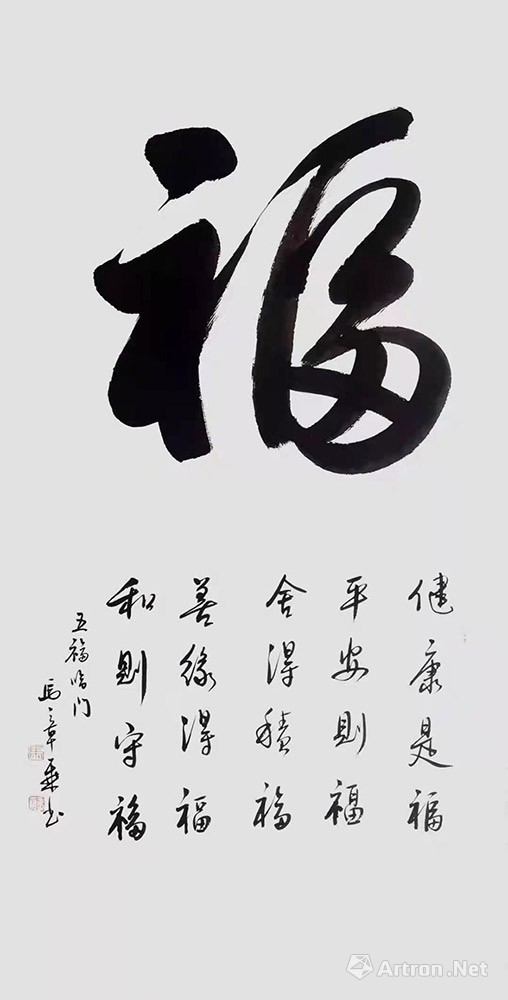 福
健康是福
平安則福
舍得積福
善緣得福
和則守福
五福临门
馬章乘书
Artron.Net